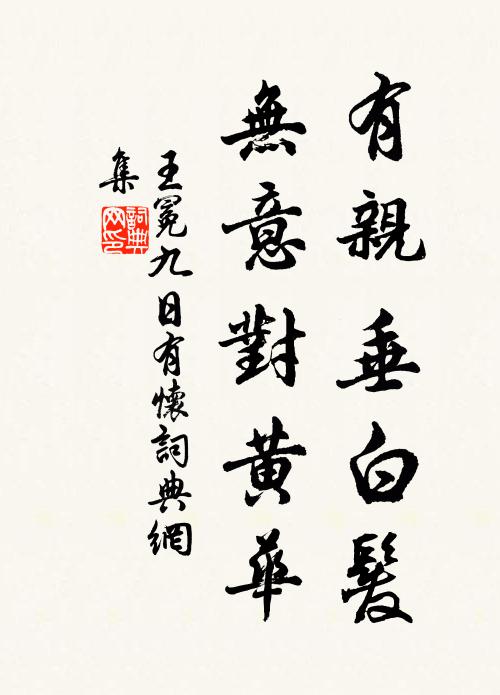 有親垂白髮
無意對黃華
王冕九日有懷詞典網
集
詞典网印